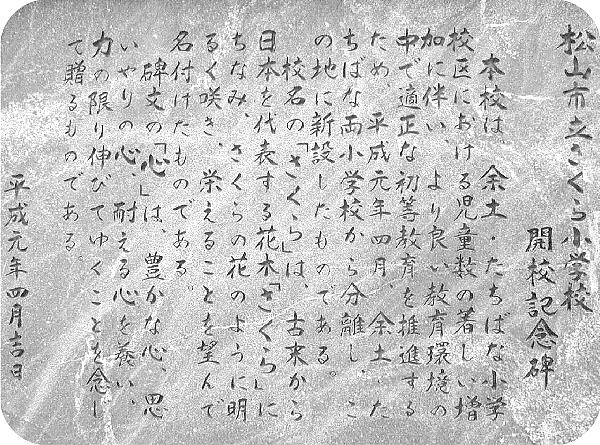 松山市立さくら小学校
開校記念碑
本校は、余土・たちばな小学
校区における児童数の著しい増
加に伴い、より良い教育環境の
中で適正な初等教育を推進する
ため、平成元年四月、余土・た
ちばな両小学校から分離し、こ
の地に新設したものである。
校名の「さくら」は、古来から
日本を代表する花木「さくら」に
ちなみ、さくらの花のように明
るく咲き、栄えることを望んで
名付けたものである。
碑文の「心」は、豊かな心、思
いやりの心、耐える心を養い、
力の限り伸びてゆくことを念じ
て贈るものである。
平成元年四月吉日